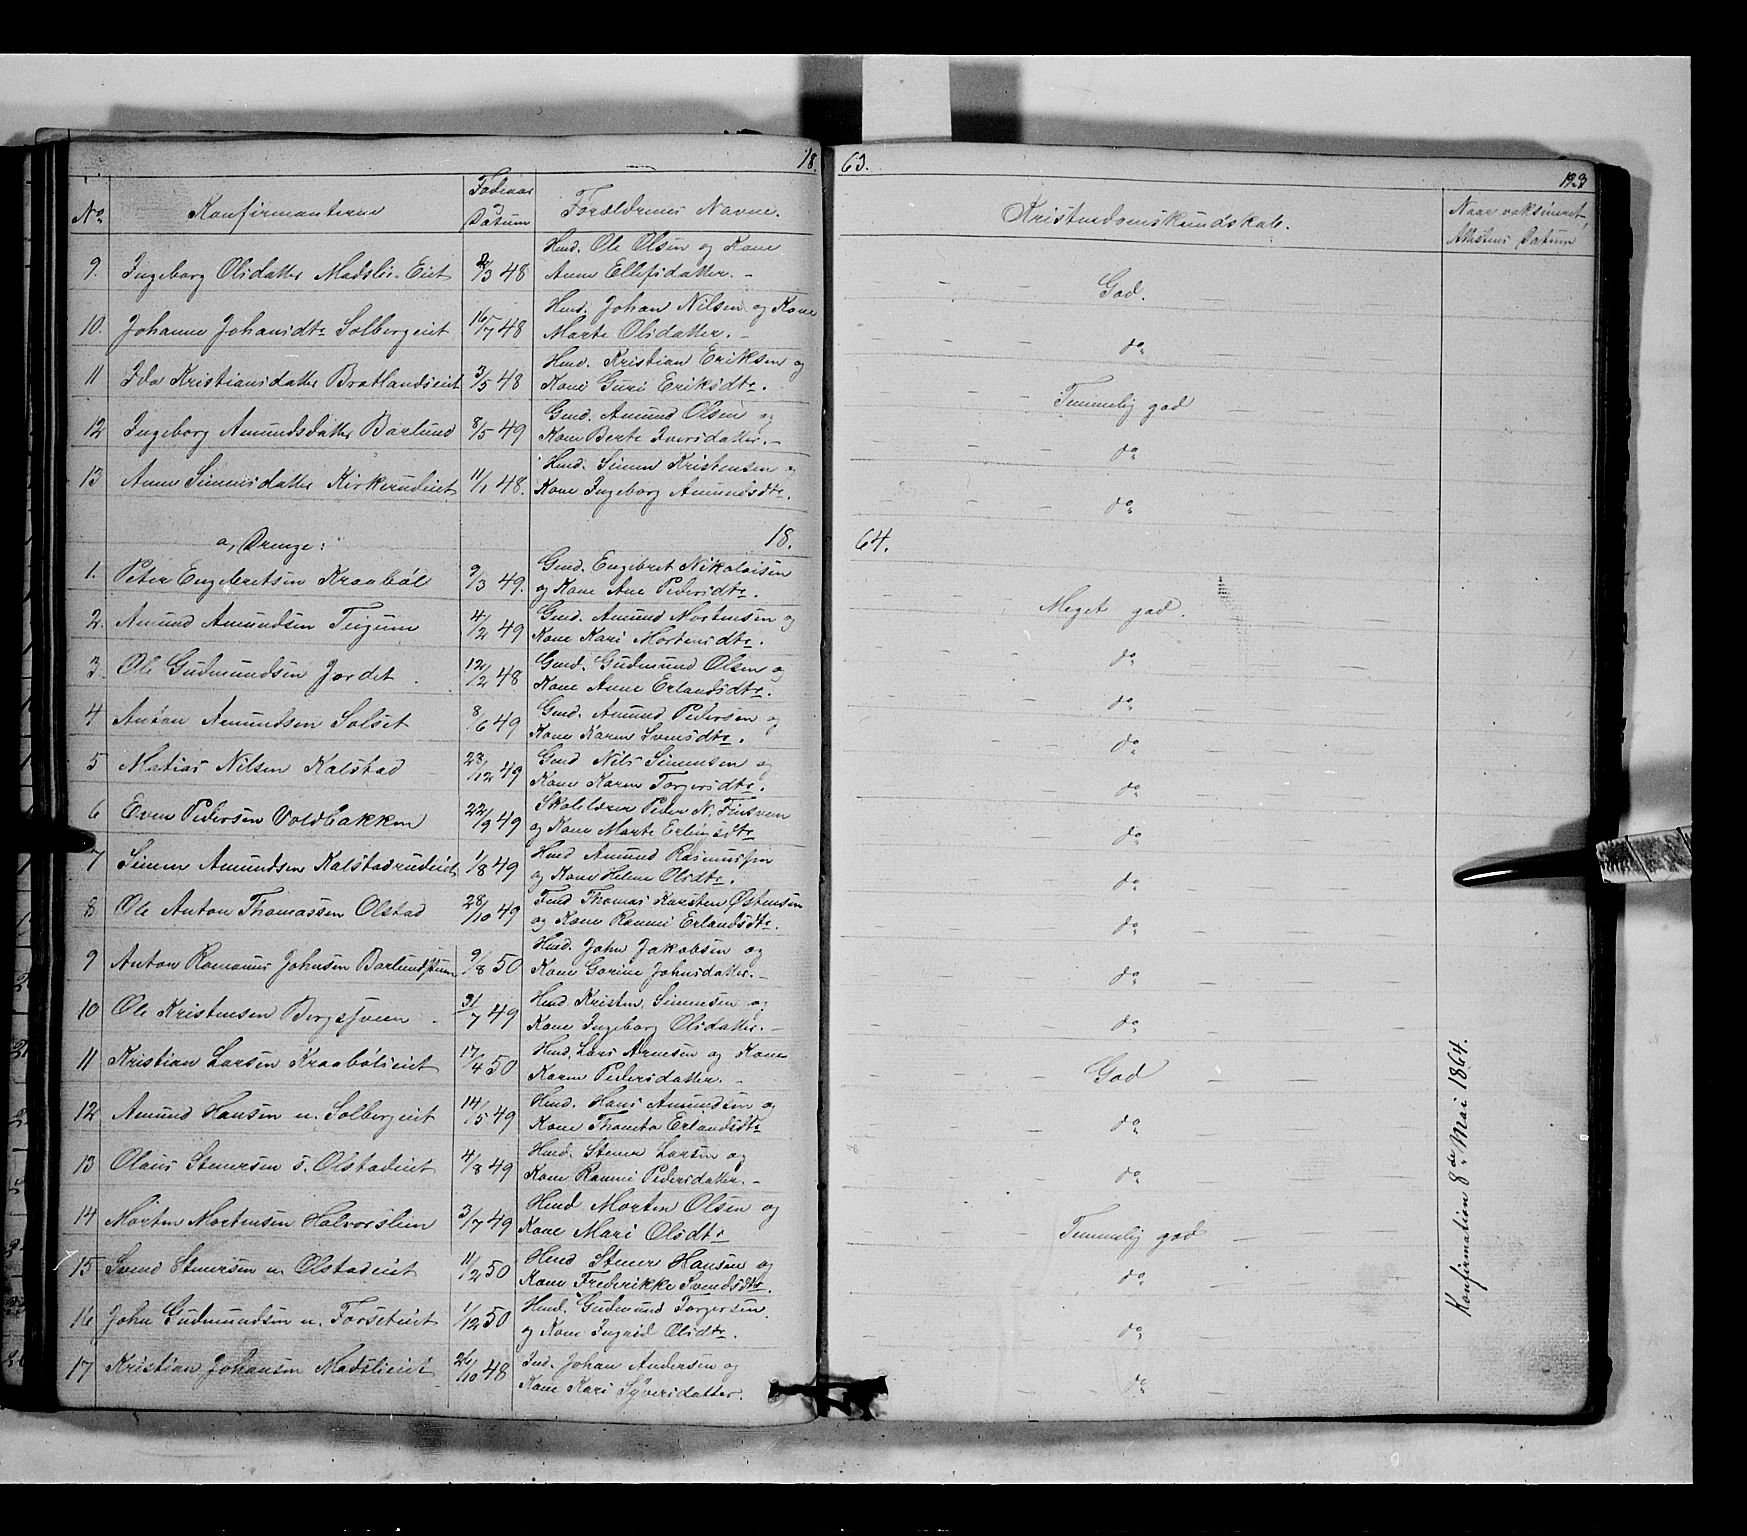 18
63.
123
No
Konfirmanterne
Fødeaar og Datum
Forældrenes Navne.
Kristendomskundskab.
Naar vaksineret, Attestens Datum
9. Ingeborg Olsdatter Madslie-Eiet 2/3 48 Huusd. Ole Olsen og Kone
Anne Ellefsdatter. — God.
10. Johanne Johansdtr Solbergeiet 16/7 48 Huusd. Johan Nilsen og Kone
Marte Olsdatter. — do
11 Ida Kristiansdatter Bratlandseiet 3/5 48 Hmd. Kristian Eriksen og
Kone Guri Eriksdtr. Temmelig god
12 Ingeborg Amundsdatter Barlund 8/5 49 Gmd. Amund Olsen og
Kone Berte Iversdatter. — do
13 Anne Simensdatter Kirkerudeiet 11/1 48. Hmd. Simen Kristensen og
Kone Ingeborg Amundsdtr. do
a, Drenge:
18.
64.
1. Peter Engebretsen Kraabøl 9/3 49. Gmd. Engebret Nikolaisen
og Kone Ane Pedersdtr. Meget god
2. Amund Amundsen Tiigum 4/2 49 Gmd. Amund Mortensen og
Kone Kari Mortensdtr. do
3. Ole Gudmundsen Jordet 12/2 48 Gmd. Gudmund Olsen og
Kone Anne Erlandsdtr. do
4 Anton Amundsen Solset 8/6 49 Gmd. Amund Pedersen og
Kone Karen Svensdtr. do
5 Matias Nilsen Kalstad 23/12 49 Gmd Nils Simensen og
Kone Karen Torgersdtr. do
6 Even Pedersen Voldbakken 22/9 49 Skolelærer Peder N. Finsveen
og Kone Marte Erlingsdtr do
7 Simen Amundsen Kalstadrudeiet 1/8 49 Hmd Amund Rasmussen
og Kone Helene Olsdtr. do
8 Ole Anton Thomassen Olstad 28/10 49 Fmd Thomas Karsten Østensen
og Kone Ronnei Erlandsdtr. do
9 Anton Romanus Johnsen Barlundstuen 9/8 50 Hmd. John Jakobsen og
Kone Gorine Johnsdatter. — do
10 Ole Kristensen Bergsveen 31/7 49 Hmd. Kristen Simensen og
Kone Ingeborg Olsdatter. — do
11 Kristian Larsen Kraabøleiet 17/4 50 Hmd. Lars Arnesen og Kone
Karen Pedersdatter. — God
12 Amund Hansen n. Solbergeiet 14/5 49 Hmd. Hans Amundsen og
Kone Thomta Erlandsdtr do
13 Olaus Stenersen s. Olstadeiet 4/8 49 Hmd. Stener Larsen og
Kone Ronnei Pedersdatter. — do
14 Morten Mortensen Halvorslien 3/7 49 Hmd Morten Olsen og
Kone Mari Olsdtr Temmelig god
15 Svend Stenersen n. Olstadeiet 11/2 50 Hmd Stener Hansen og
Kone Frederikke Svendsdtr. do
16 John Gudmundsen n. Forseteiet 1/12 50 Hmd. Gudmund Torgersen
og Kone Ingrid Olsdtr. do
17 Kristian Johansen Madslieeiet 26/10 48 Ind. Johan Andersen og
Kone Kari Syversdatter. do
Konfirmation 8de Mai 1864.